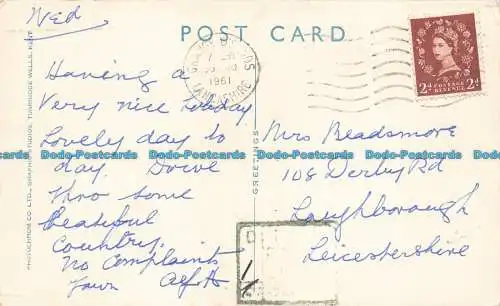 POST CARD
Wed
Having a
Very nice holiday
Lovely day to
day. Drove
thro some
Beatiful
Country.
No Complaints
Yours Alf H
Mrs Beadsmore
108 Derby Rd
Loughborough
Leicestershire
GREETINGS
PHOTOCHROM CO. LTD., GRAPHIC STUDIOS, TUNBRIDGE WELLS, KENT
1961
2d POSTAGE REVENUE 2d
Dodo-Postcards Dodo-Postcards Dodo-Postcards Dodo-Postcards
Dodo-Postcards Dodo-Postcards Dodo-Postcards Dodo-Postcards